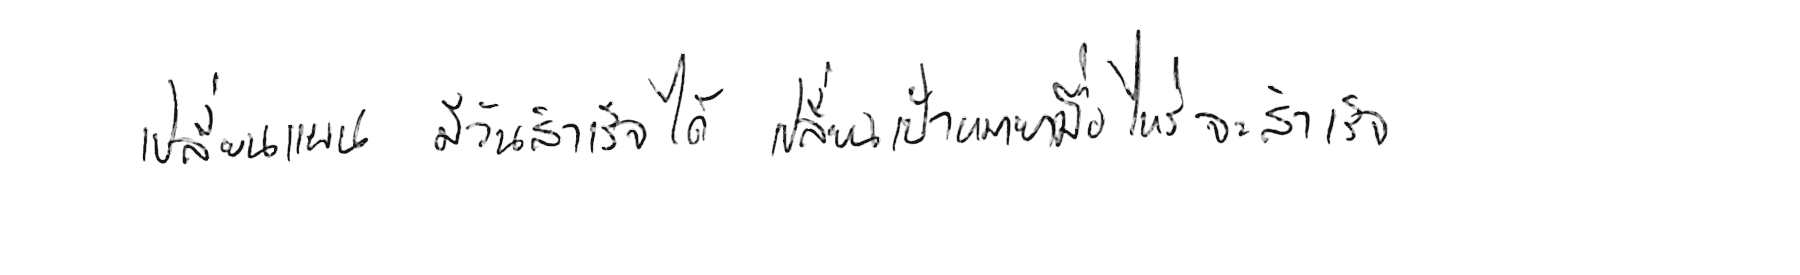 เปลี่ยนแผน มีวันสำเร็จได้ เปลี่ยนเป้าหมายเมื่อไหร่จะสำเร็จ